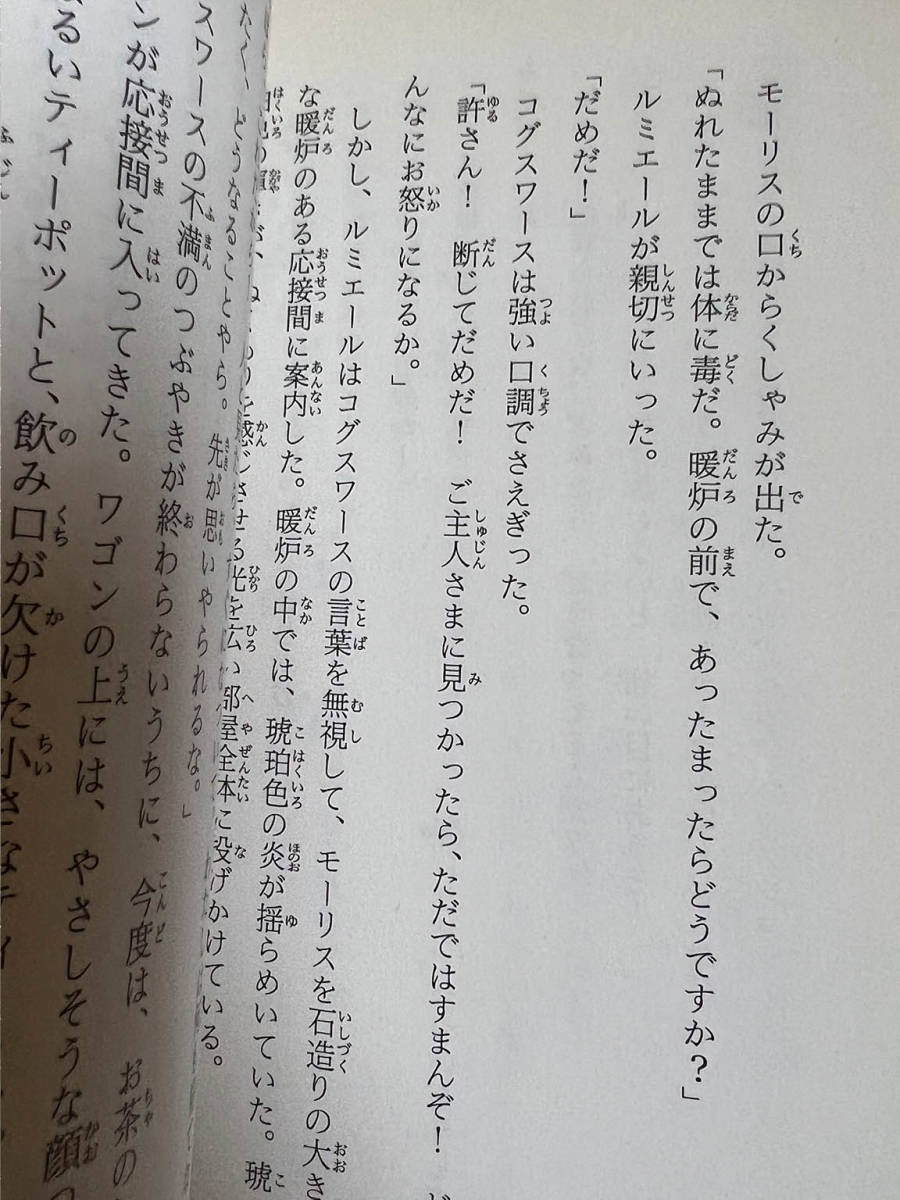 モーリスの口からくしゃみが出た。
「ぬれたままでは体に毒だ。暖炉の前で、あったまったらどうですか?」
ルミエールが親切にいった。
「だめだ!」
コグスワースは強い口調でさえぎった。
「許さん! 断じてだめだ! ご主人さまに見つかったら、ただではすまんぞ!
んなにお怒りになるか。」
しかし、ルミエールはコグスワースの言葉を無視して、モーリスを石造りの大き
な暖炉のある応接間に案内した。暖炉の中では、琥珀色の炎が揺らめいていた。琥
感じさせる光を広い部屋全体に投げかけている。
たく、どうなることやら。先が思いやられるな。」
スワースの不満のつぶやきが終わらないうちに、今度は、お茶の
ンが応接間に入ってきた。ワゴンの上には、やさしそうな顔
るいティーポットと、飲み口が欠けた小さなティ